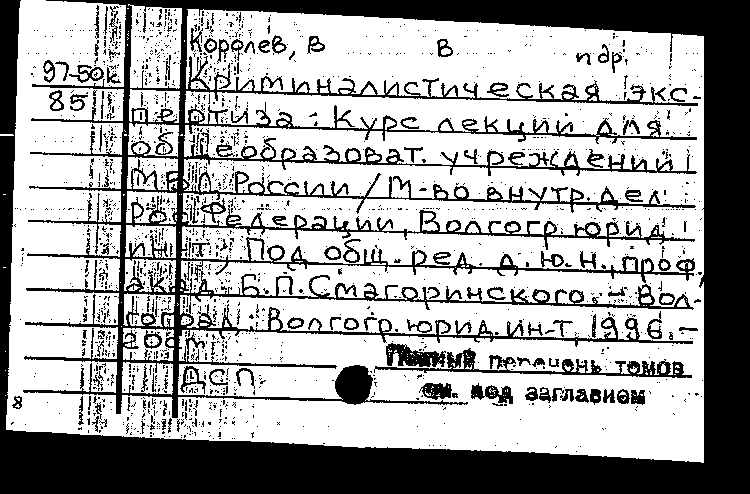 Королев, В В и др.
97-50к Криминалистическая экс-
85 пертиза: Курс лекций для
общеобразоват. учреждений
МВД России / М-во внутр. дел
Рос. Федерации, Волгогр. юрид.
ин-т; Под общ. ред. д.ю.н., проф.,
акад. Б.П. Смагоринского. - Вол-
гоград: Волгогр. юрид. ин-т, 1996. -
20см
Полный перечень томов
ДСП см. под заглавием
8